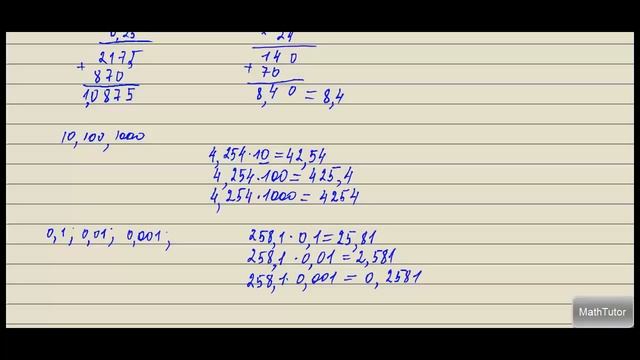 0,25
2175
+ 870
1,0875
24
140
+ 70
8,40 = 8,4
10, 100, 1000
4,254·10 = 42,54
4,254·100 = 425,4
4,254·1000 = 4254
0,1; 0,01; 0,001;
258,1·0,1 = 25,81
258,1·0,01 = 2,581
258,1·0,001 = 0,2581
MathTutor